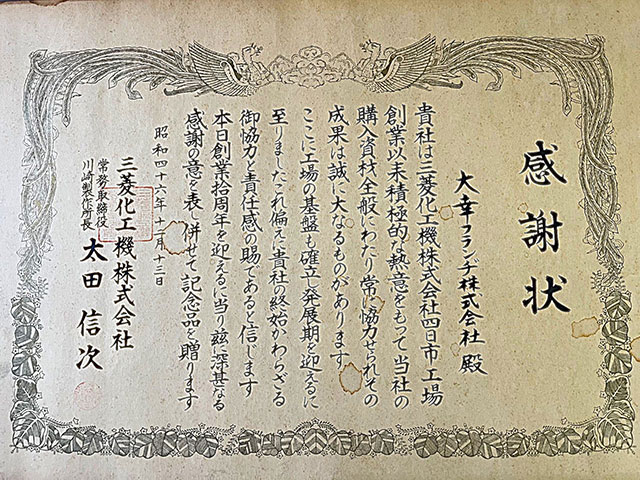 感謝状
大幸フランヂ株式会社 殿
貴社は三菱化工機株式会社四日市工場
創業以来積極的な熱意をもって当社の
購入資材全般にわたり常に協力せられその
成果は誠に大なるものがあります
ここに工場の基盤も確立し発展期を迎えるに
至りましたこれ偏に貴社の終始かわらざる
御協力と責任感の賜であると信じます
本日創業拾周年を迎えるに当り茲に深甚なる
感謝の意を表し併せて記念品を贈ります
昭和四十六年十二月十三日
三菱化工機株式会社
常務取締役
川崎製作所長
太田信次